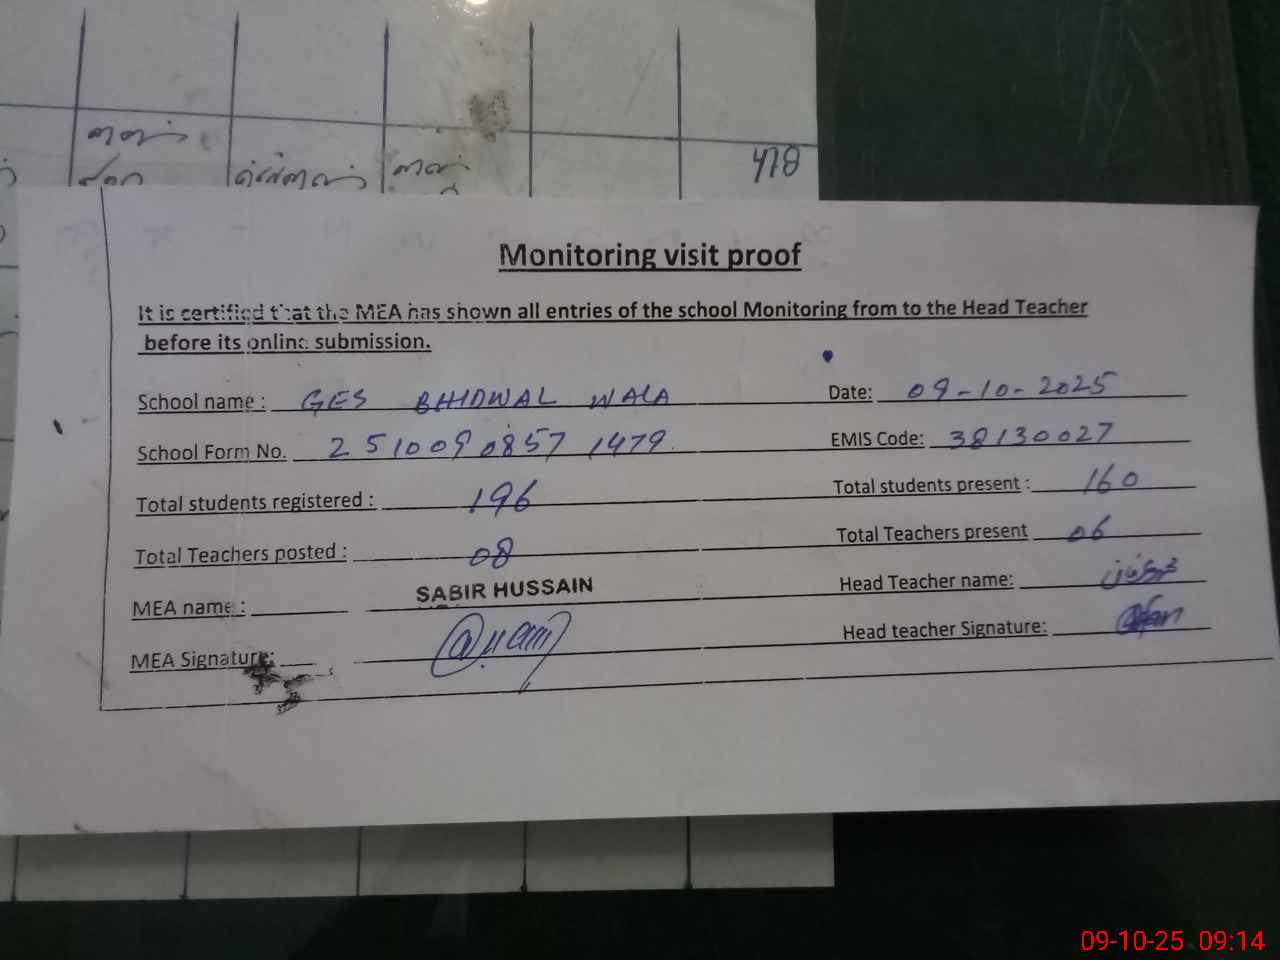 478
Monitoring visit proof
It is certified that the MEA has shown all entries of the school Monitoring from to the Head Teacher
before its online submission.
School name : GES BHIDWAL WALA Date: 09-10-2025
School Form No. 2510090857 1479 EMIS Code: 38130027
Total students registered : 196 Total students present : 160
Total Teachers posted : 08 Total Teachers present 06
MEA name : SABIR HUSSAIN Head Teacher name:
MEA Signature: Head teacher Signature:
09-10-25 09:14